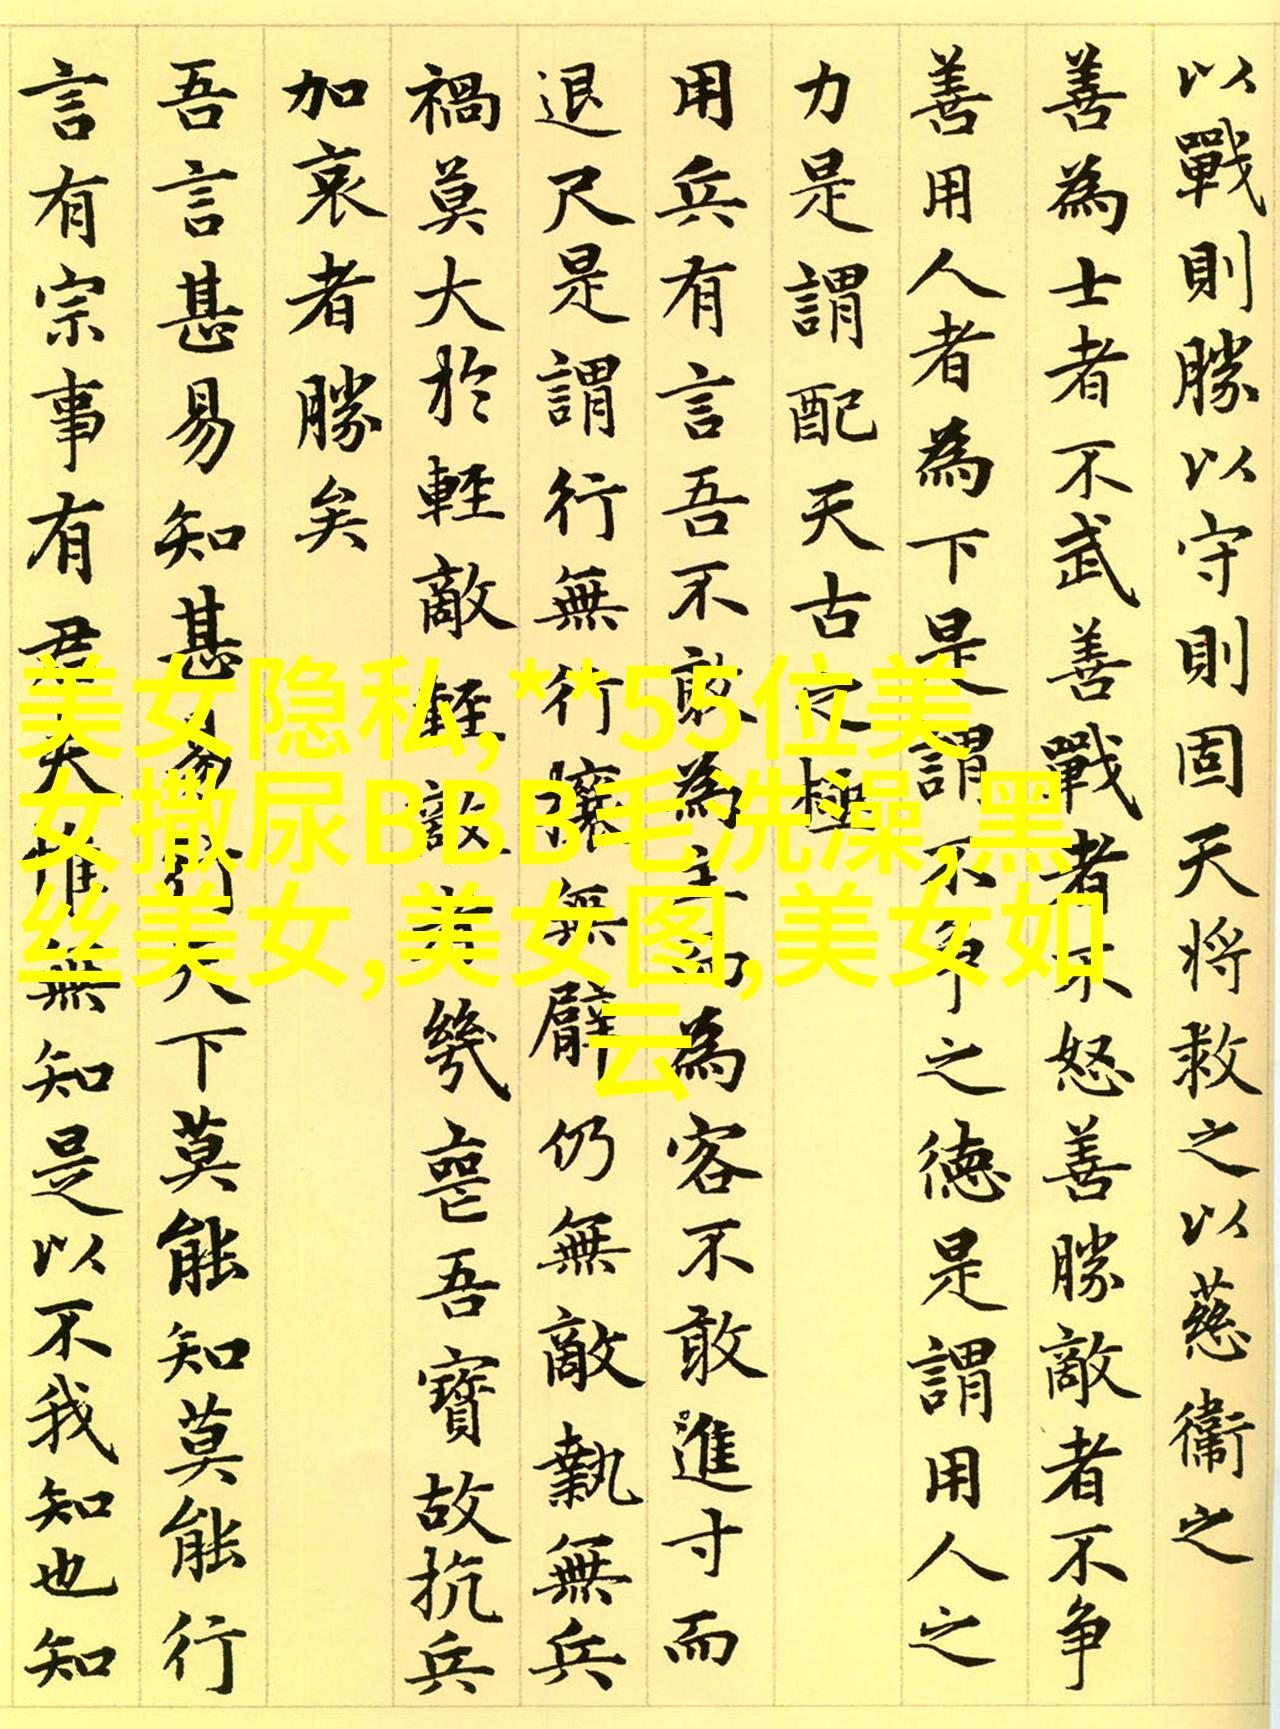 以戰則勝以守則固天將救之以慈衞之
善為士者不武善戰者不怒善勝敵者不争
善用人者為下是謂不争之德是謂用人之
力是謂配天古之極
用兵有言吾不敢為主而為客不敢進寸而
退尺是謂行無行攘無臂仍無敵執無兵
禍莫大於輕敵輕敵者幾喪吾寶故抗兵
加哀者勝矣
吾言甚易知甚易行天下莫能知莫能行
言有宗事有君夫惟無知是以不我知也知
美女隐私,**55位美
女撒尿BBB毛洗澡,黑
丝美女,美女图,美女如
云